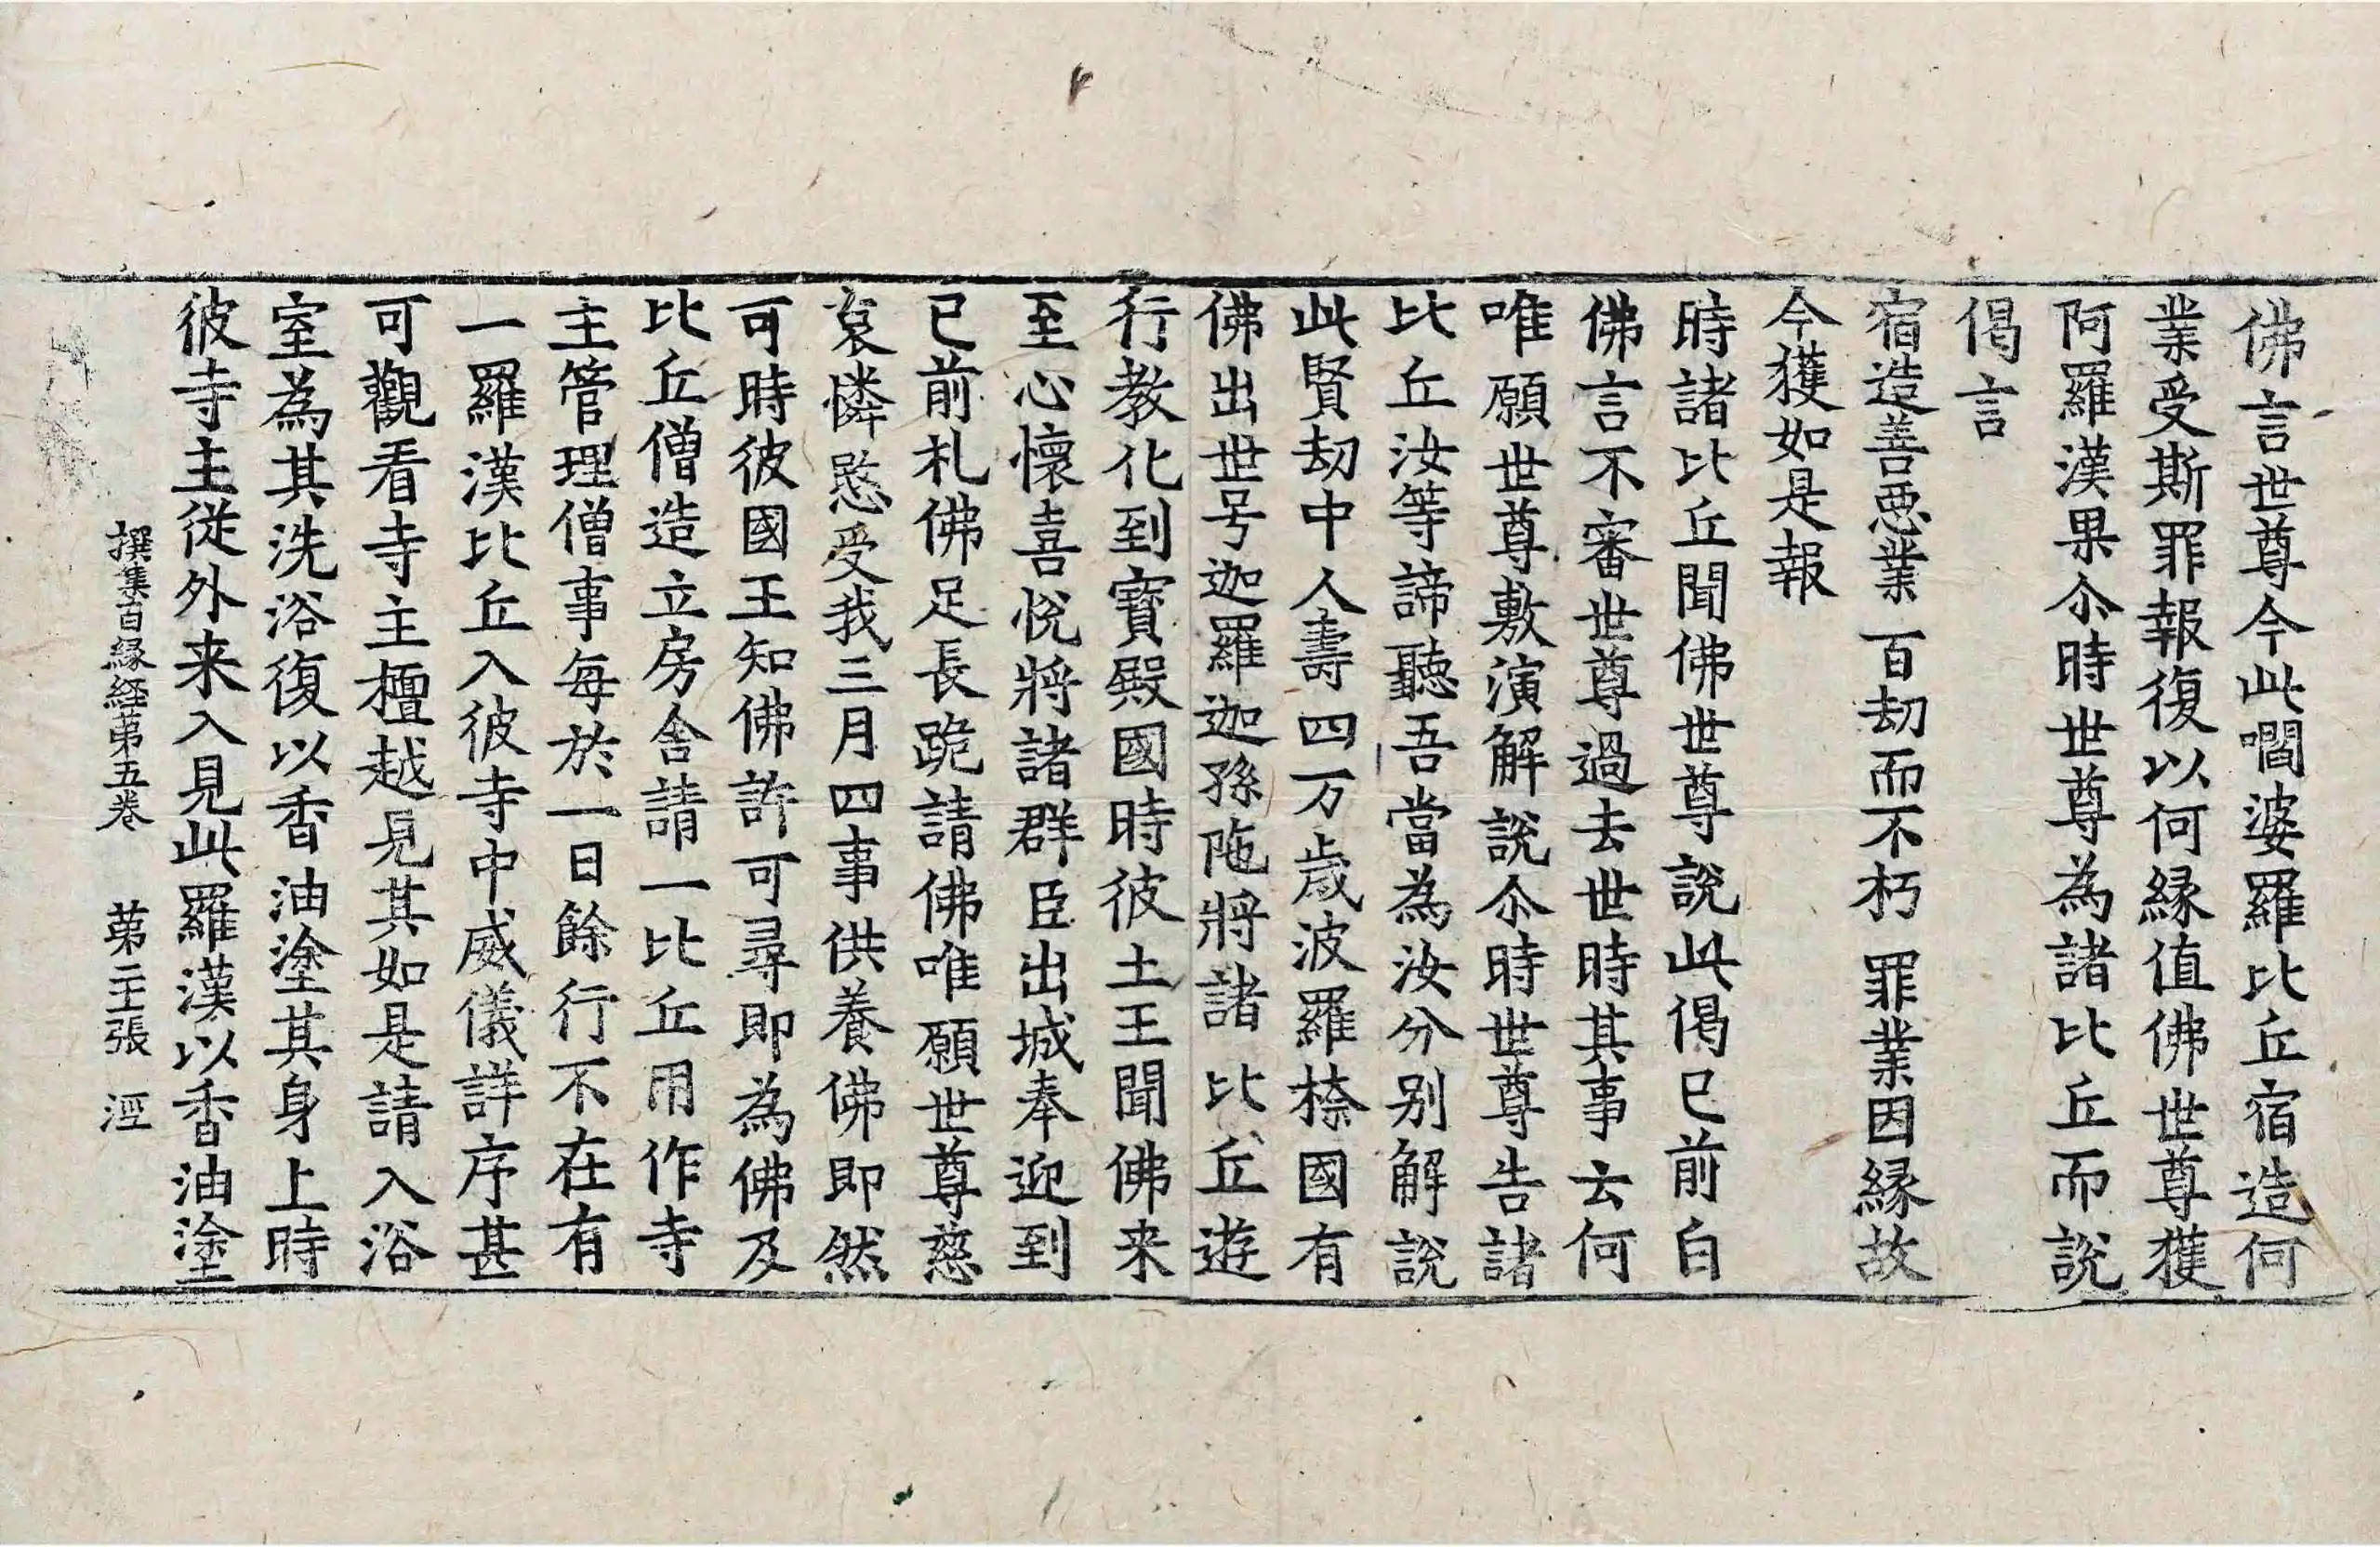 佛言世尊今此嚪婆羅比丘宿造何
業受斯罪報復以何縁值佛世尊獲
阿羅漢果尒時世尊為諸比丘而說
偈言
宿造善惡業 百劫而不朽 罪業因縁故
今獲如是報
時諸比丘聞佛世尊說此偈已前白
佛言不審世尊過去世時其事云何
唯願世尊敷演解說尒時世尊告諸
比丘汝等諦聽吾當為汝分別解說
此賢劫中人壽四万歲波羅㮈國有
佛出世号迦羅迦孫陁將諸比丘遊
行教化到寶殿國時彼土王聞佛来
至心懷喜悅將諸群臣出城奉迎到
已前礼佛足長跪請佛唯願世尊慈
哀憐愍受我三月四事供養佛即然
可時彼國王知佛許可尋即為佛及
比丘僧造立房舍請一比丘用作寺
主管理僧事每於一日餘行不在有
一羅漢比丘入彼寺中威儀詳序甚
可觀看寺主檀越見其如是請入浴
室為其洗浴復以香油塗其身上時
彼寺主從外来入見此羅漢以香油塗
撰集百縁経苐五卷 苐二十張 涇